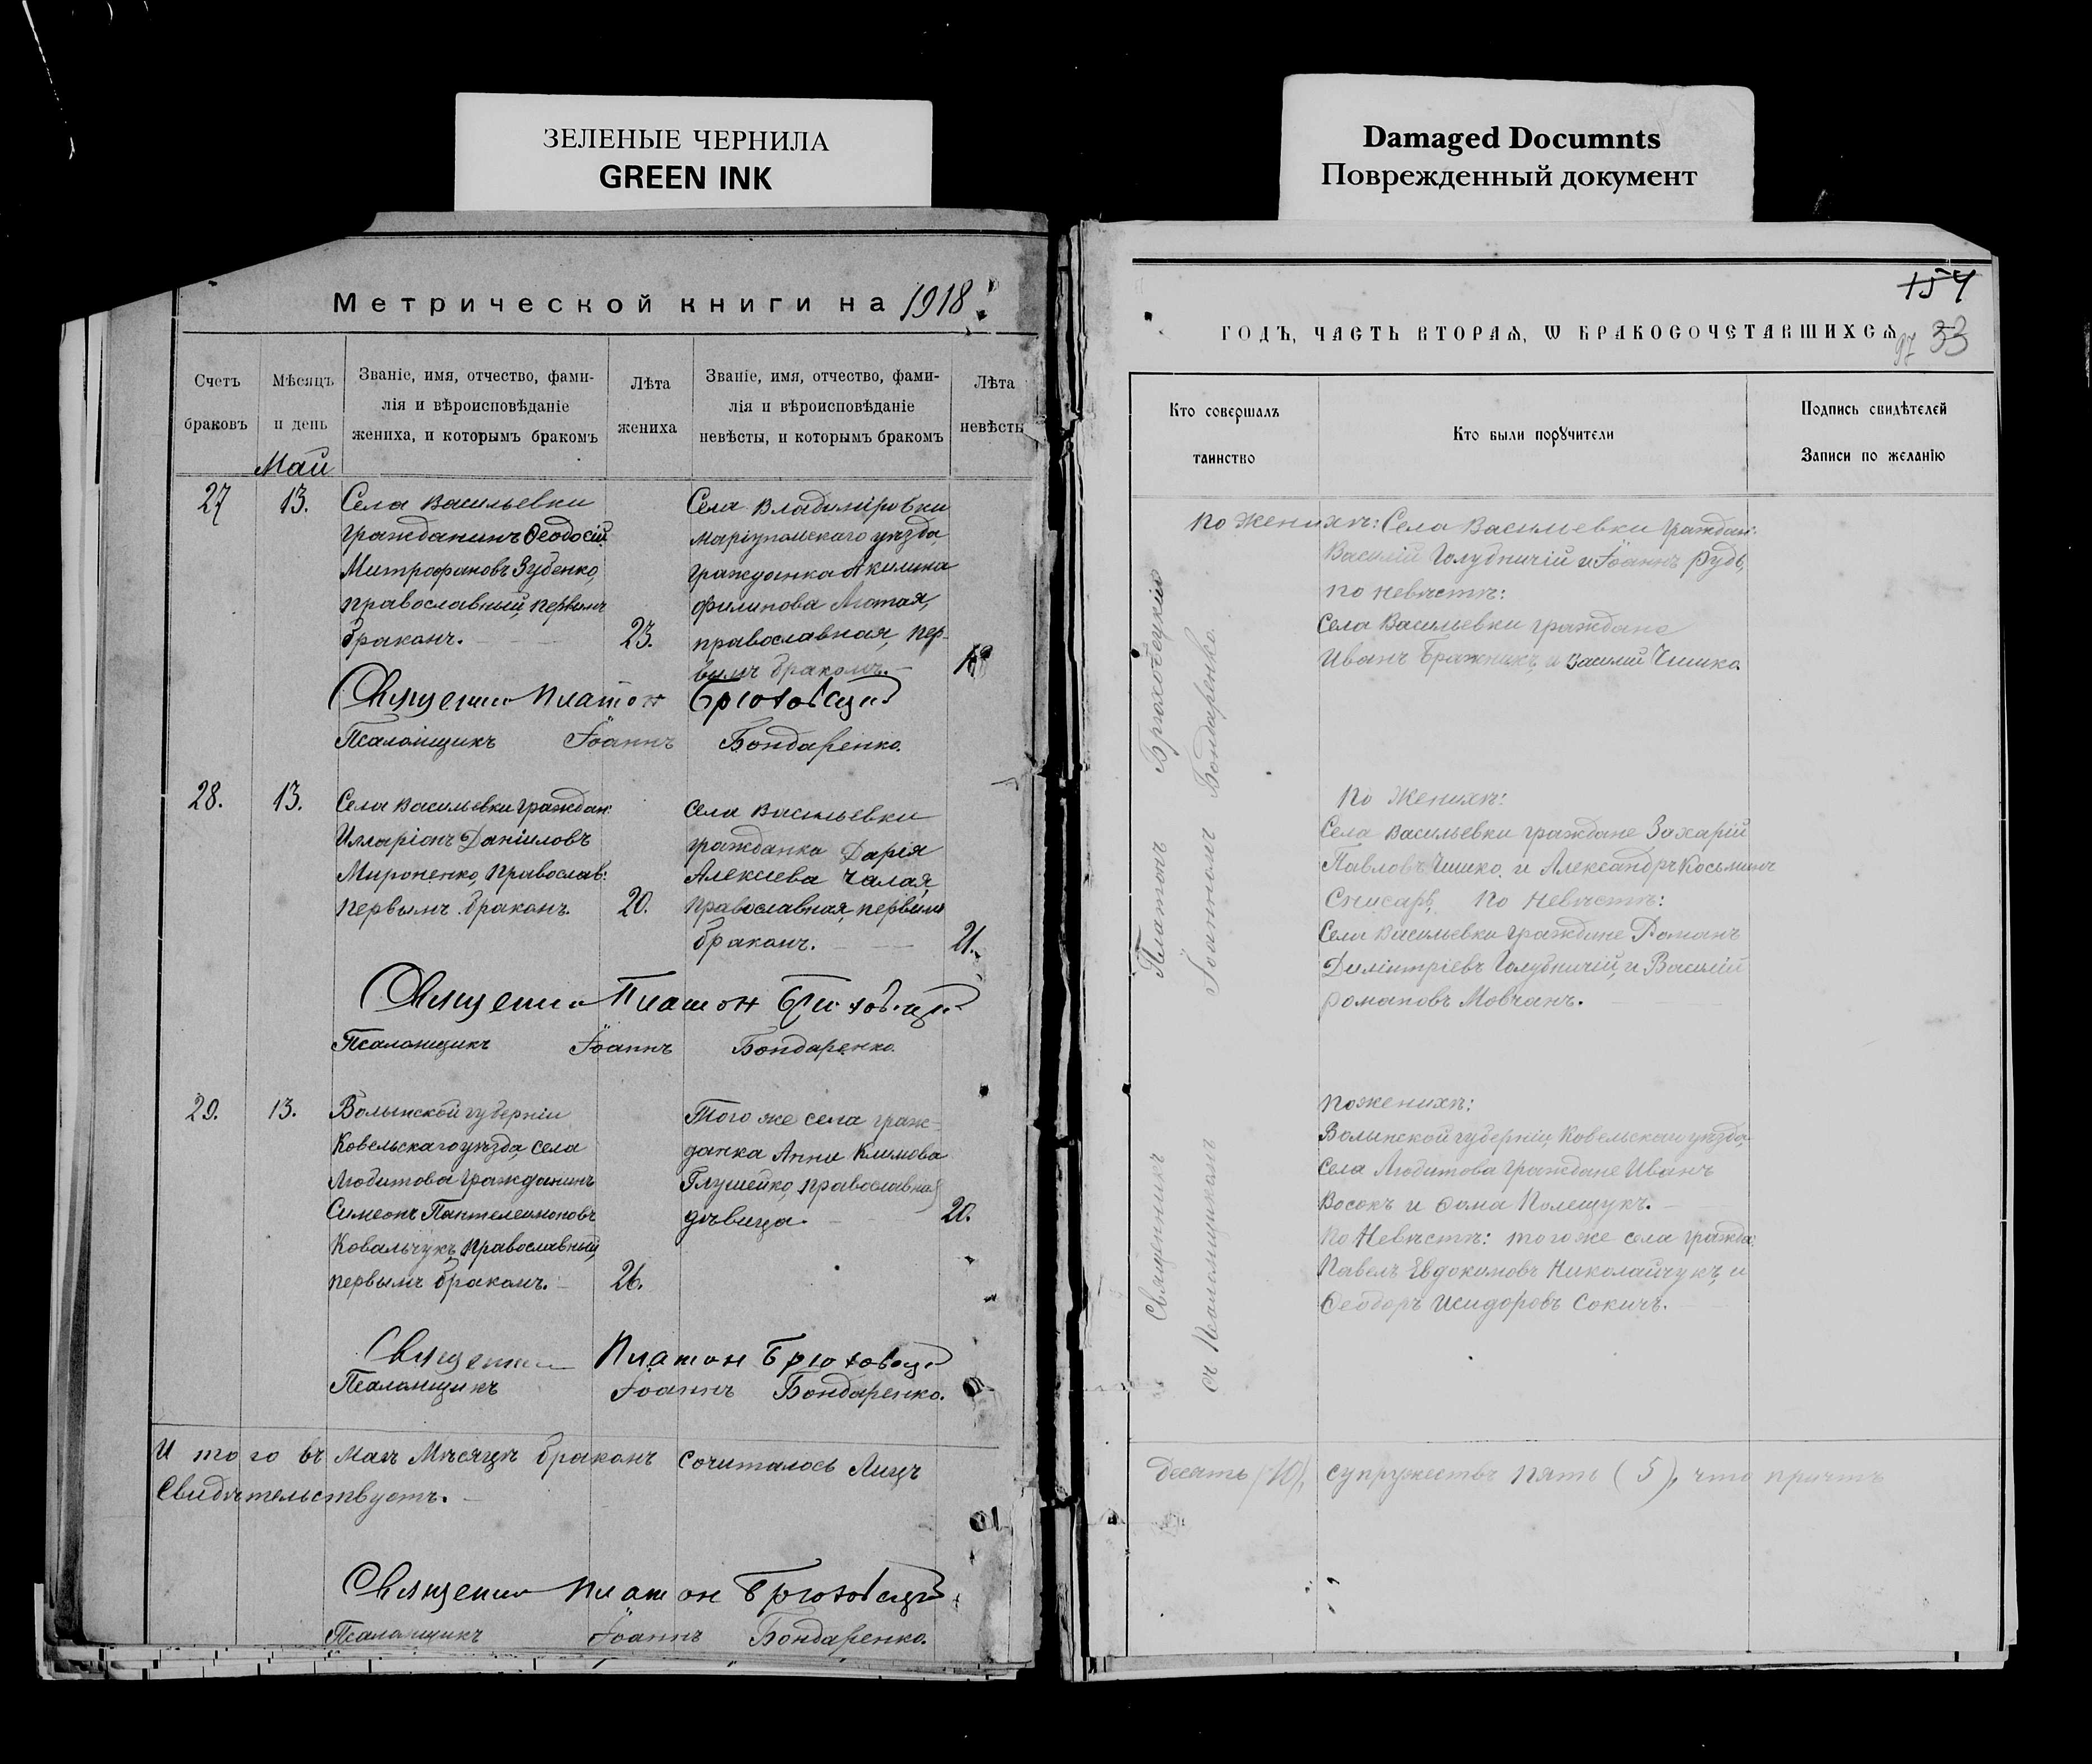 ЗЕЛЕНЫЕ ЧЕРНИЛА
GREEN INK
Damaged Documnts
Поврежденный документ
Метрической книги на 1918
Счетъ браковъ
Мѣсяцъ и день
Званіе, имя, отчество, фами-
лія и вѣроисповѣданіе
жениха, и которымъ бракомъ
Лѣта жениха
Званіе, имя, отчество, фами-
лія и вѣроисповѣданіе
невѣсты, и которымъ бракомъ
Лѣта невѣсты
Май
27
13.
Села Васильевки
гражданинъ Ѳеодосій
Митрофановъ Зубенко,
православный, первымъ
бракомъ.
23.
Села Владиміровки
маріупольскаго уѣзда,
гражданка Акилина
Филипова Лютая,
православная, пер-
вымъ бракомъ.
18
Священникъ Платон Брюховецкій
Псаломщикъ Іоаннъ Бондаренко.
28.
13.
Села Васильевки граждан:
Илларіонъ Даніиловъ
Мироненко, Православ:
первымъ бракомъ.
20.
Села Васильевки
гражданка Дарія
Алексіева Чалая,
православная, первымъ
бракомъ.
21.
Священникъ Платон Брюховецкій
Псаломщикъ Іоаннъ Бондаренко.
29.
13.
Волынской губерніи
Ковельскаго уѣзда села
Любитова гражданинъ
Симеонъ Пантелеимоновъ
Ковальчукъ, Православный,
первымъ бракомъ.
26.
Того же села граж-
данка Анна Климова
Глушейко, православная
дѣвица.
20.
Священникъ Платон Брюховецкій
Псаломщикъ Іоаннъ Бондаренко.
И того въ маѣ Мѣсяцѣ бракомъ Сочиталось Лицъ
Свидѣтельствуетъ.
Священникъ Платон Брюховецкій
Псаломщикъ Іоаннъ Бондаренко.
154
годъ, часть вторая, ѡ бракосочетавшихся
97 33
Кто совершалъ таинство
Кто были порꙋчители
Подпись свидѣтелей
Записи по желанію
Священникъ Платонъ Брюховецкій
съ Псаломщикомъ Іоанномъ Бондаренко.
По Женихѣ: Села Васильевки граждан:
Василій Голубничій и Іоаннъ Рудь,
по невѣстѣ:
Села Васильевки граждане
Иванъ Бражникъ, и Василій Чишко.
По Женихѣ:
Села Васильевки граждане Захарій
Павловъ Чишко, и Александръ Косьминъ
Снисарь, По Невѣстѣ:
Села Васильевки граждане Романъ
Димитріевъ Голубничій, и Василій
романовъ Мовчанъ.
По женихѣ:
Волынской губерніи, Ковельскаго уѣзда,
села Любитова граждане Иванъ
Восокъ и Ѳома Полещукъ.
По Невѣстѣ: того же села гражда:
Павелъ Евдокимовъ Николайчукъ, и
Ѳеодоръ Исидоровъ Сокичъ.
Десять (10), супружествъ пять (5), что причтъ